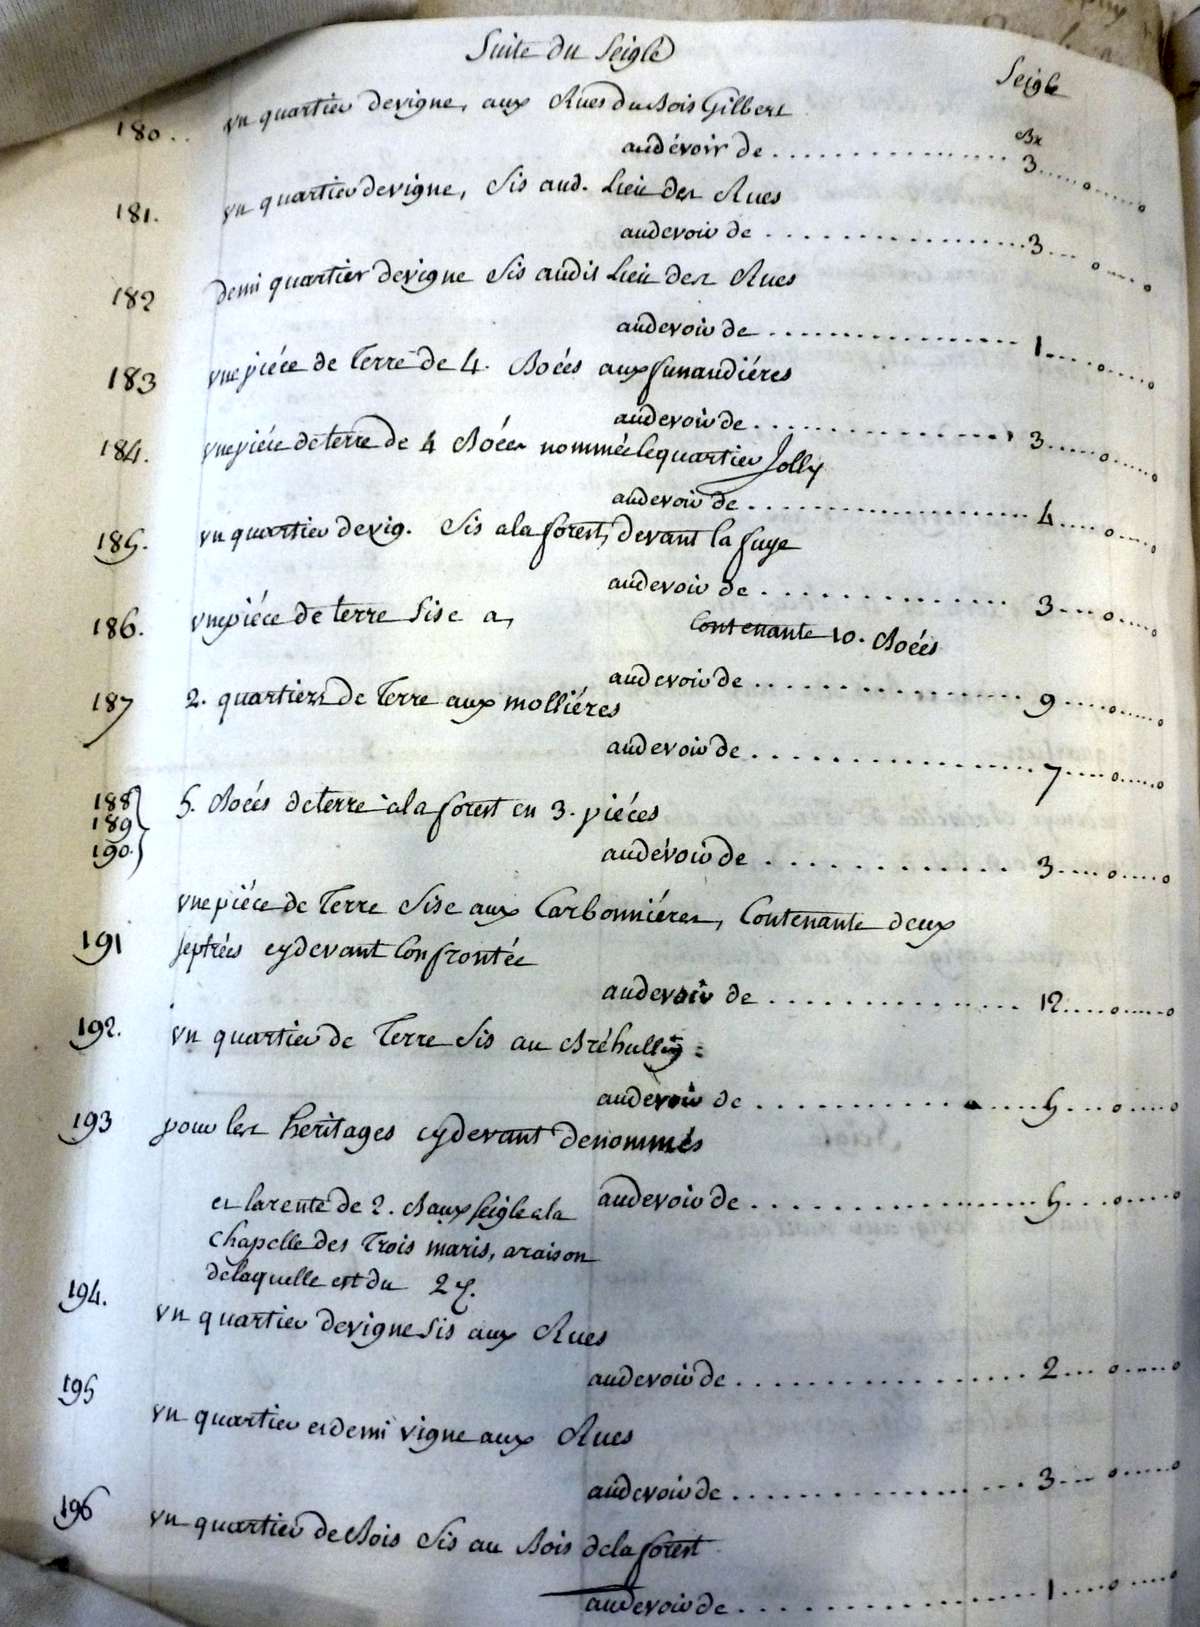 Suite du Seigle
Seigle
180.. un quartier de vigne, aux Rues du Bois Gilbert
Bx
au dévoir de ................ 3.....o.....o
181. un quartier de vigne, sis aud. Lieu des Rues
au devoir de ................ 3.....o.....o
182 demi quartier de vigne sis audit Lieu des Rues
au devoir de ................ 1.....o.....o
183 une piéce de Terre de 4. Boées aux funaudiéres
au devoir de ................ 3.....o.....o
184. une piéce de terre de 4 Boées nommée le quartier Jolly
au devoir de ................ 4.....o.....o
185. un quartier de vig. sis a la forest, devant la fuye
au devoir de ................ 3.....o.....o
186. une piéce de terre sise a, Contenante 10. Boées
au devoir de ................ 9.....o.....o
187 2. quartiers de Terre aux molliéres
au devoir de ................ 7.....o.....o
188
189 5. Boées de terre a la forest en 3. piéces
190. au dévoir de ................ 3.....o.....o
une piéce de Terre sise aux Carbonniéres, Contenante deux
191 septrées cy devant Confrontée
au devoir de ................ 12.....o.....o
192. un quartier de Terre sis au
au devoir de ................ 5.....o.....o
193 pour les héritages cy devant denommés
au devoir de ................ 5.....o.....o
et la rente de 2. Baux seigle a la
Chapelle des Trois maris, a raison
de laquelle est du 2
194. un quartier de vigne sis aux Rues
au devoir de ................ 2.....o.....o
195 un quartier et demi vigne aux Rues
au devoir de ................ 3.....o.....o
196 un quartier de Bois sis au Bois de la forest
au devoir de ................ 1.....o.....o